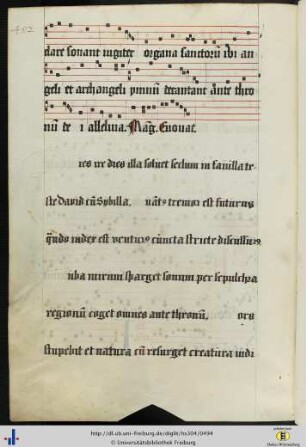 402
dare sonant iugiter organa sanctorũ ibi an
geli et archangeli ymnũ decantant ante thro
nũ de i alleluia. Mag̃. Euouae.
ies ire dies illa soluet seclum in fauilla te⸗
ste Dauid cũ Sybilla. uãtꝰ tremor est futurus
qũdo iudex est venturꝰ cuncta stricte discussurꝰ
uba mirum sparget sonum per sepulchra
regionũ coget omnes ante thronũ. ors
stupebit et natura cũ resurget creatura iudi
http://dl.ub.uni-freiburg.de/diglit/hs304/0494
© Universitätsbibliothek Freiburg